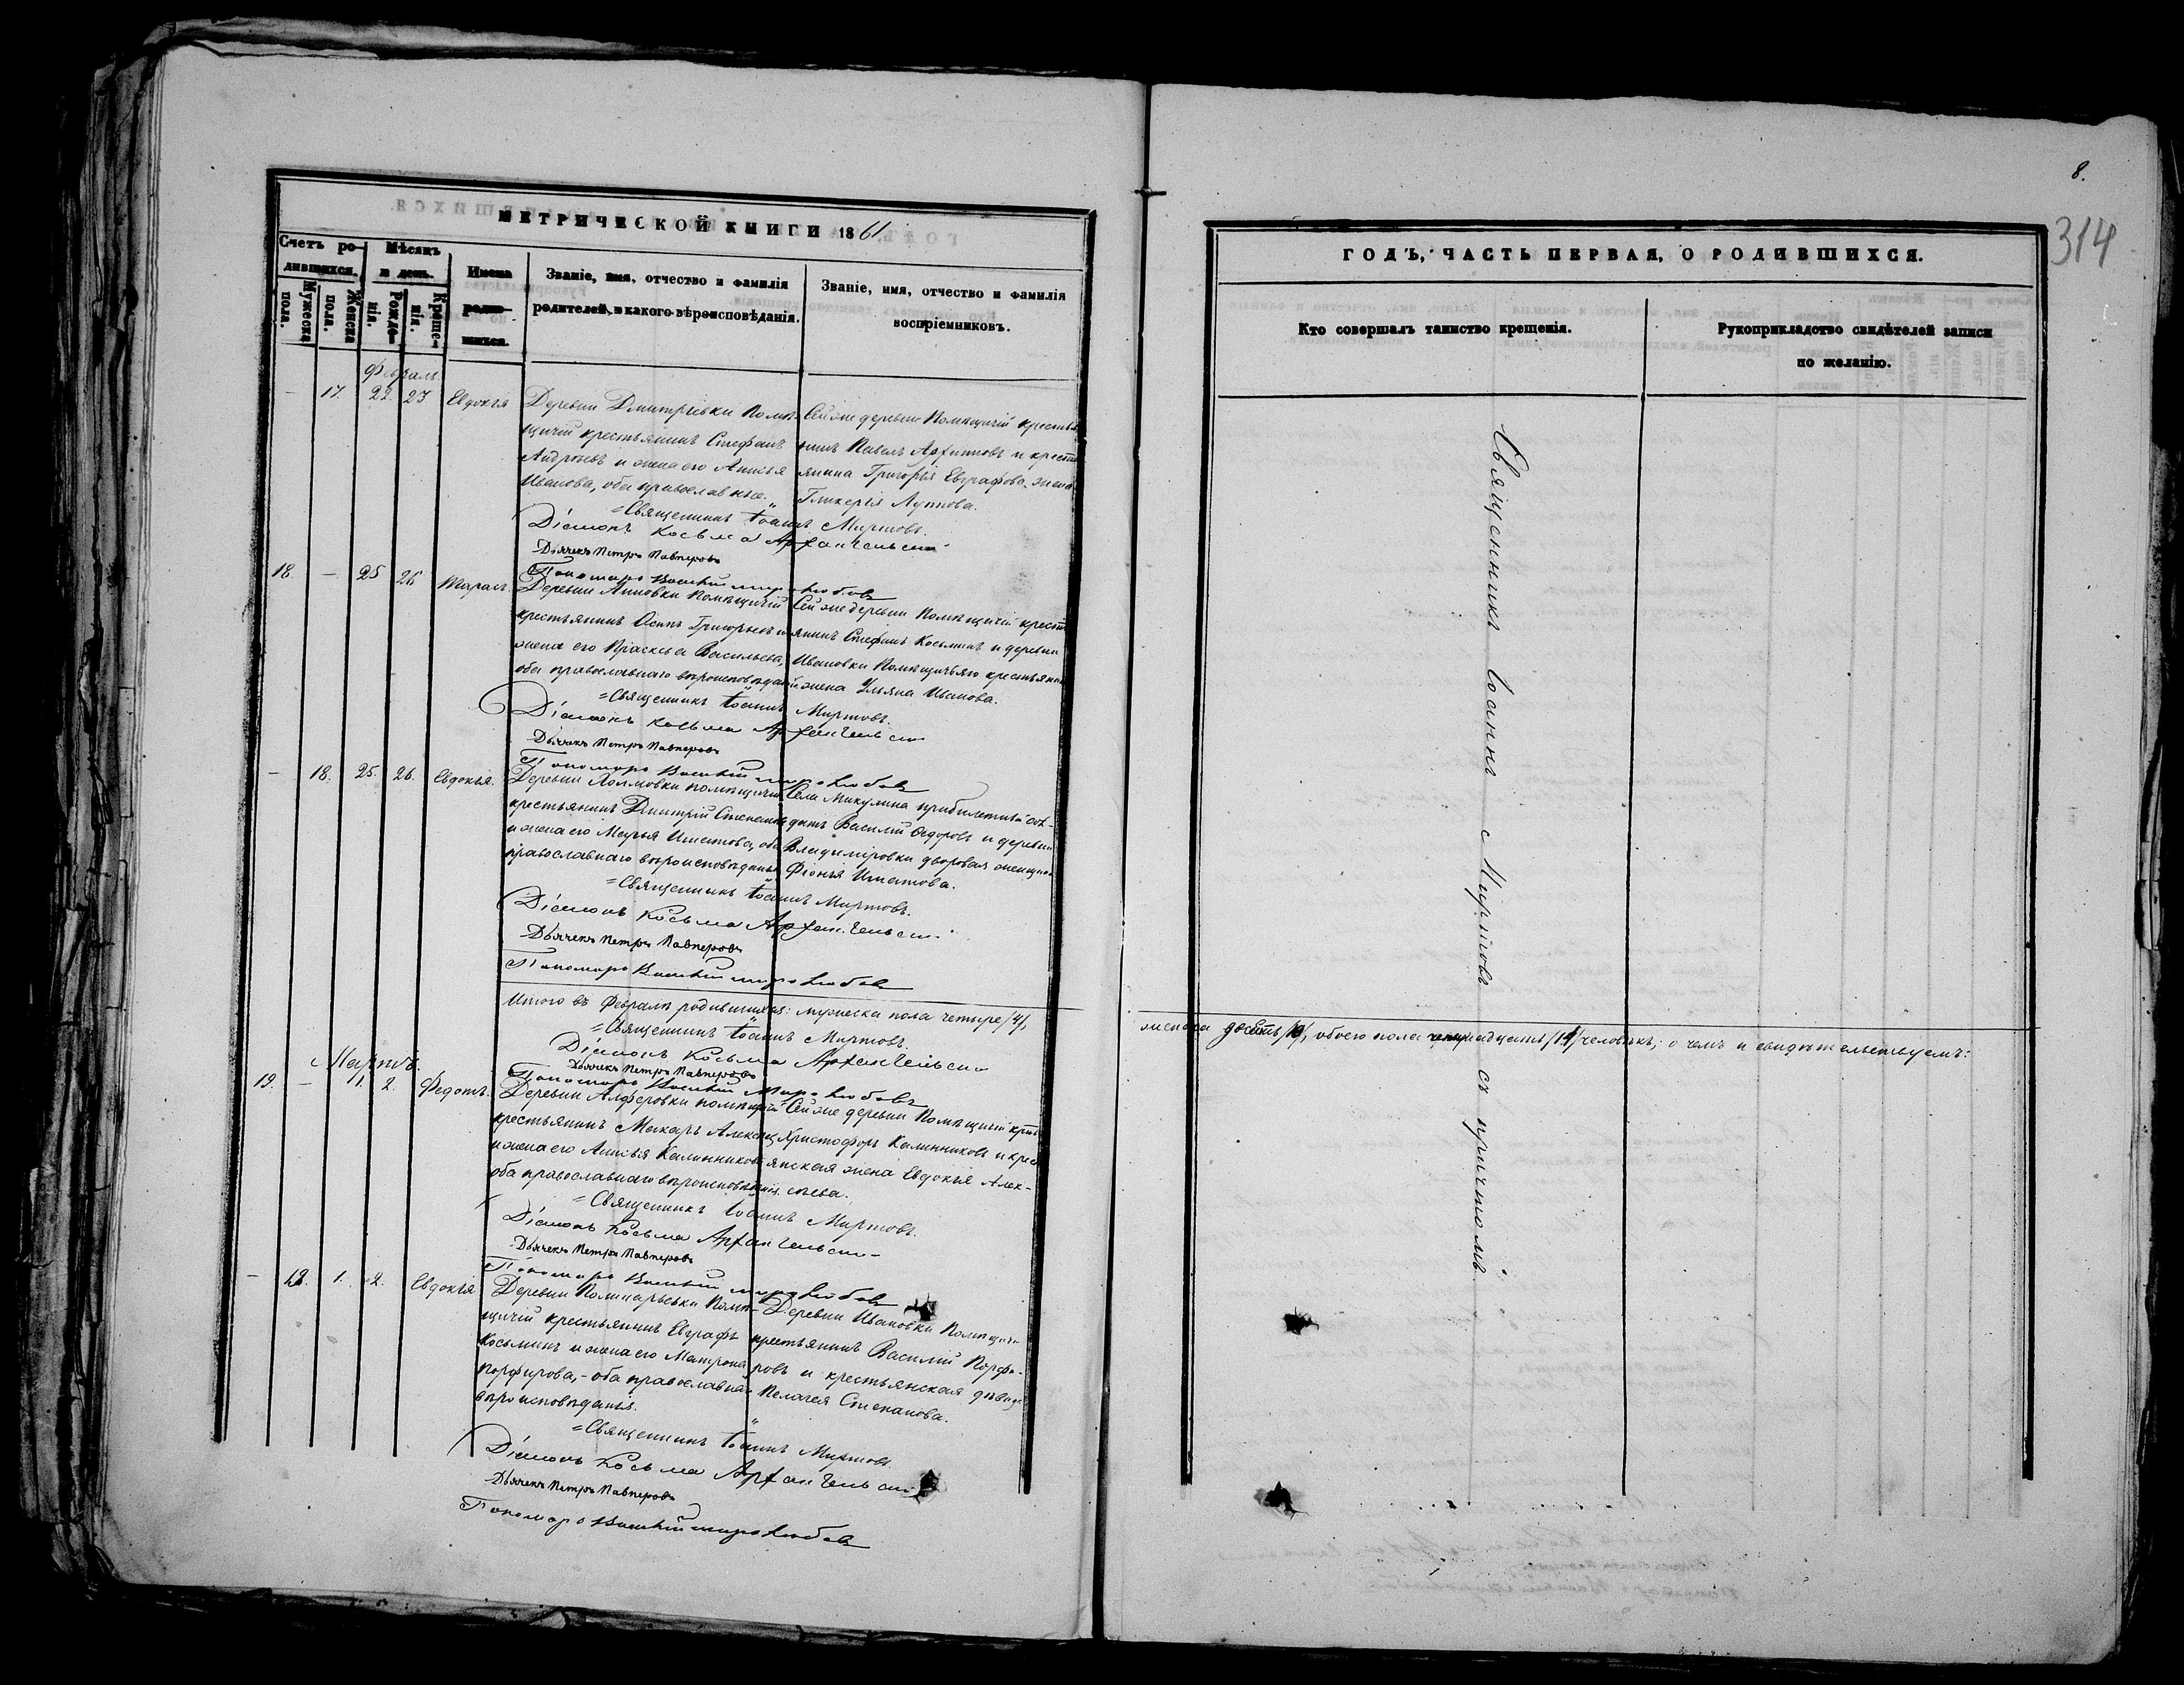 МЕТРИЧЕСКОЙ КНИГИ 1861
Счетъ ро-
дившихся.
Мужеска
пола.
Женска
пола.
Мѣсяцъ
и день.
Рожде-
нія.
Креще-
нія.
Имена
родив-
шихся.
Званіе, имя, отчество и фамилія
родителей, и какого вѣроисповѣданія.
Званіе, имя, отчество и фамилія
воспріемниковъ.
Февраль
— 17. 22. 23 Евдокія
Деревни Дмитріевки Помѣ-
щичій крестьянинъ Стефанъ
Андреевъ и жена его Анисья
Иванова, оба православные.
Сей же деревни Помѣщичій крестья
нинъ Павелъ Архиповъ и кресть
янина Григорія Евграфова жена
Гликерія
Священникъ Іоаннъ Миртовъ.
Діаконъ Косьма Архангельскій
Дьячекъ Петръ Павперовъ
Пономарь Василій Миролюбовъ
18. — 25 26 Тарасъ.
Деревни Анновки Помѣщичій
крестьянинъ Осипъ Григорьевъ и
жена его Праскевья Васильева,
оба православнаго вѣроисповѣданія
Сей же деревни Помѣщичій кресть
янинъ Стефанъ Косьминъ и деревни
Ивановки Помѣщичьяго крестьянина
жена Ульяна Иванова.
Священникъ Іоаннъ Миртовъ.
Діаконъ Косьма Архангельскій
Дьячекъ Петръ Павперовъ
Пономарь Василій Миролюбовъ
— 18. 25. 26. Евдокія.
Деревни Холмовки помѣщичій
крестьянинъ Дмитрій Степановъ
и жена его Марья Игнатова, оба
православнаго вѣроисповѣданія
Села Микулина прибилетный сол-
датъ Василій Ѳедоровъ и деревни
Владиміровки дворовая женщина
Фіонья Игнатова.
Священникъ Іоаннъ Миртовъ.
Діаконъ Косьма Архангельскій
Дьячекъ Петръ Павперовъ
Пономарь Василій Миролюбовъ
Итого въ Февралѣ родившихся: мужеска пола четыре /4/,
Священникъ Іоаннъ Миртовъ.
Діаконъ Косьма Архангельскій
Дьячекъ Петръ Павперовъ
Пономарь Василій Миролюбовъ
Мартъ.
19. — 1. 2. Федотъ.
Деревни Алферовки помѣщичій
крестьянинъ Макаръ
и жена его Анисья Калинникова
оба православнаго вѣроисповѣданія.
Сей же деревни Помѣщичій
Христофоръ Калинниковъ и крес
янская жена Евдокія Алек-
сѣева.
Священникъ Іоаннъ Миртовъ.
Діаконъ Косьма Архангельскій
Дьячекъ Петръ Павперовъ
Пономарь Василій Миролюбовъ
— 1. 2. Евдокія
Деревни Помѣ-
щичій крестьянинъ Евграфъ
Косьминъ и жена его Матрона
Порфирова, - оба православнаго
вѣроисповѣданія.
Деревни Ивановки Помѣщичій
крестьянинъ Василій Порфи-
ровъ и крестьянская дѣвица
Пелагея Степанова.
Священникъ Іоаннъ Миртовъ.
Діаконъ Косьма Архангельскій
Дьячекъ Петръ Павперовъ
Пономарь Василій Миролюбовъ
8.
314
ГОДЪ, ЧАСТЬ ПЕРВАЯ, О РОДИВШИХСЯ.
Кто совершалъ таинство крещенія.
Рукоприкладство свидѣтелей записи
по желанію.
Священникъ Іоаннъ Миртовъ съ причтомъ.
женска обоего пола человѣкъ; о чемъ и свидѣтельствуемъ: